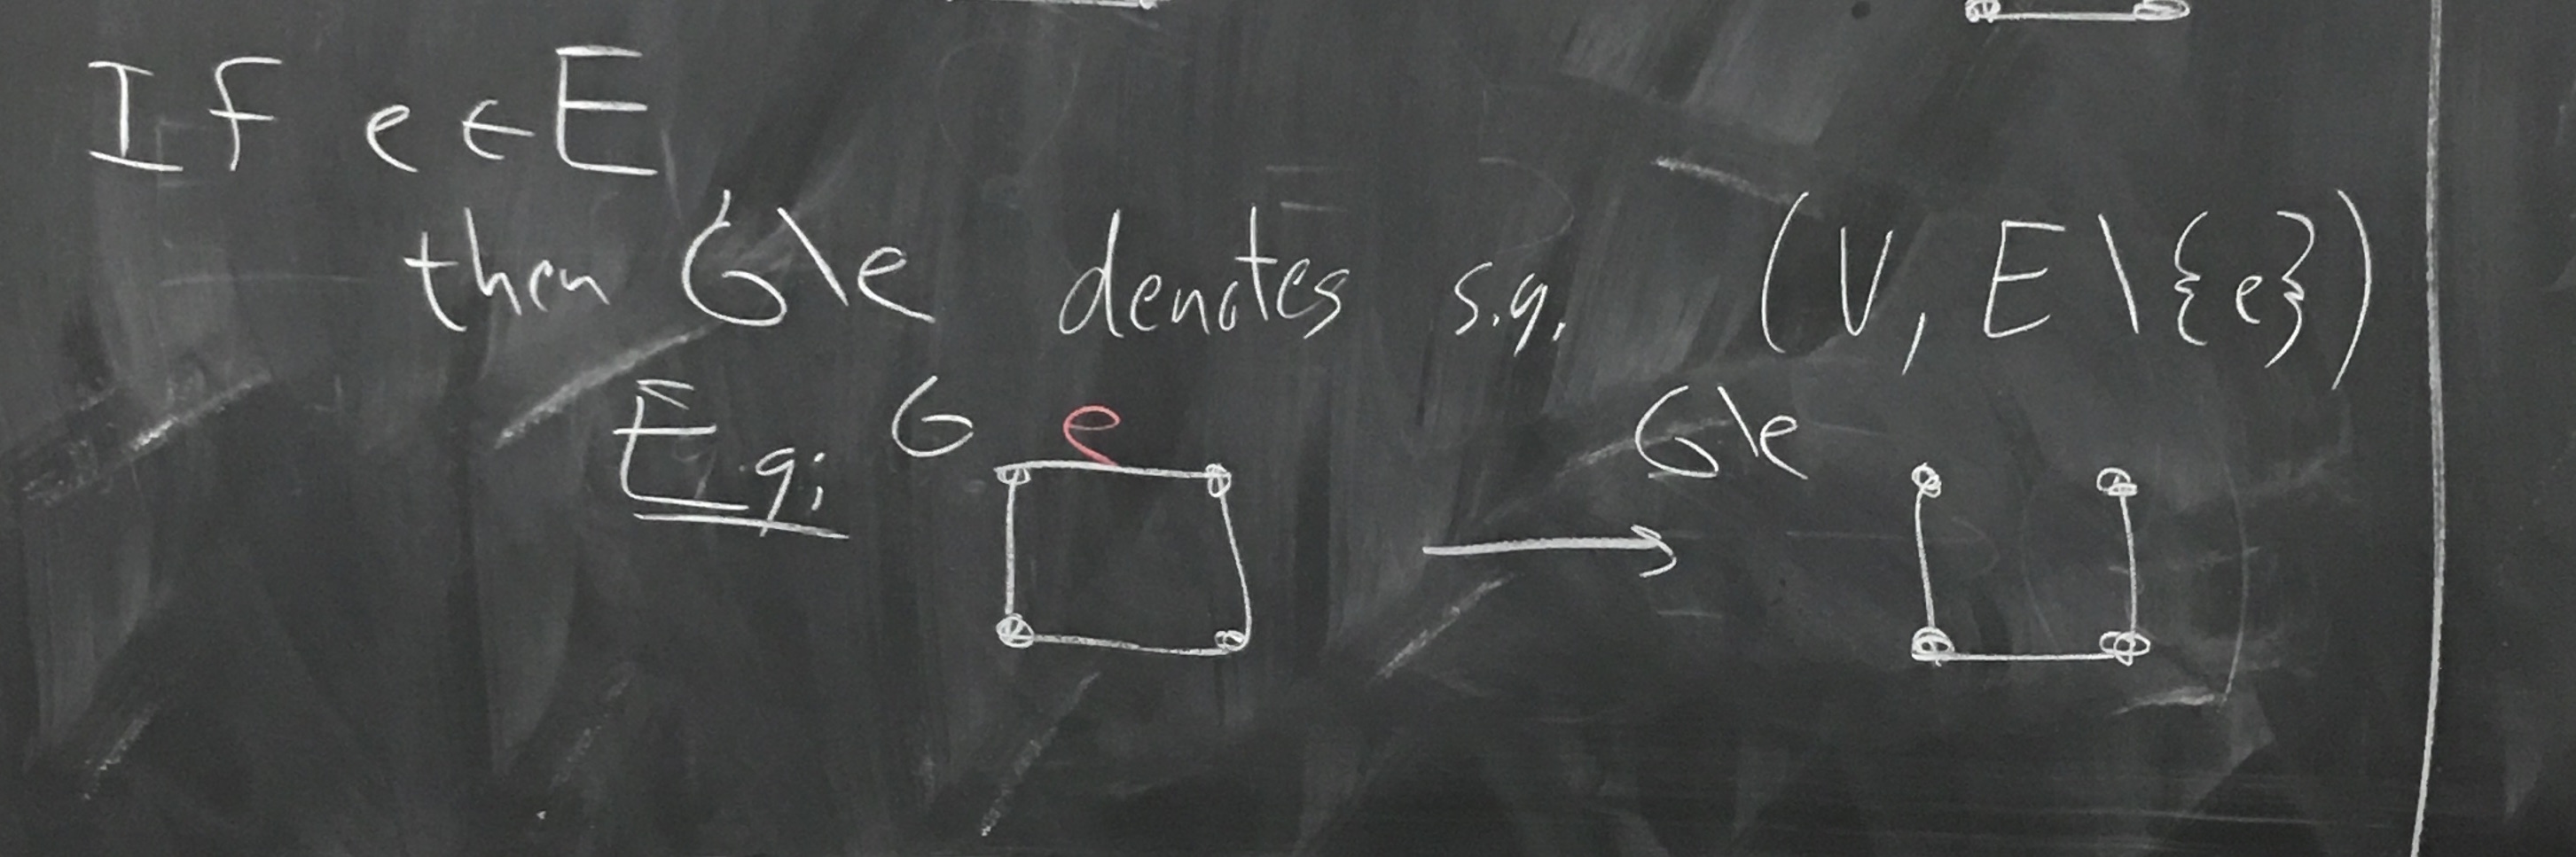 If e ∈ E
then G\e denotes s.g. (V, E \ {e})
E.g: G e G\e